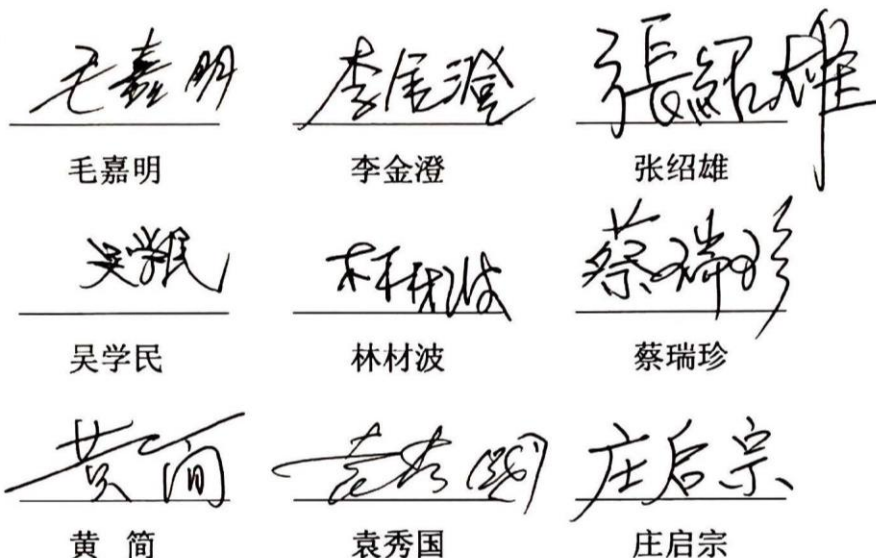 毛嘉明 李金澄 張紹雄
毛嘉明 李金澄 张绍雄
吴学民 林材波 蔡瑞珍
吴学民 林材波 蔡瑞珍
黄简 袁秀国 庄启宗
黄 简 袁秀国 庄启宗